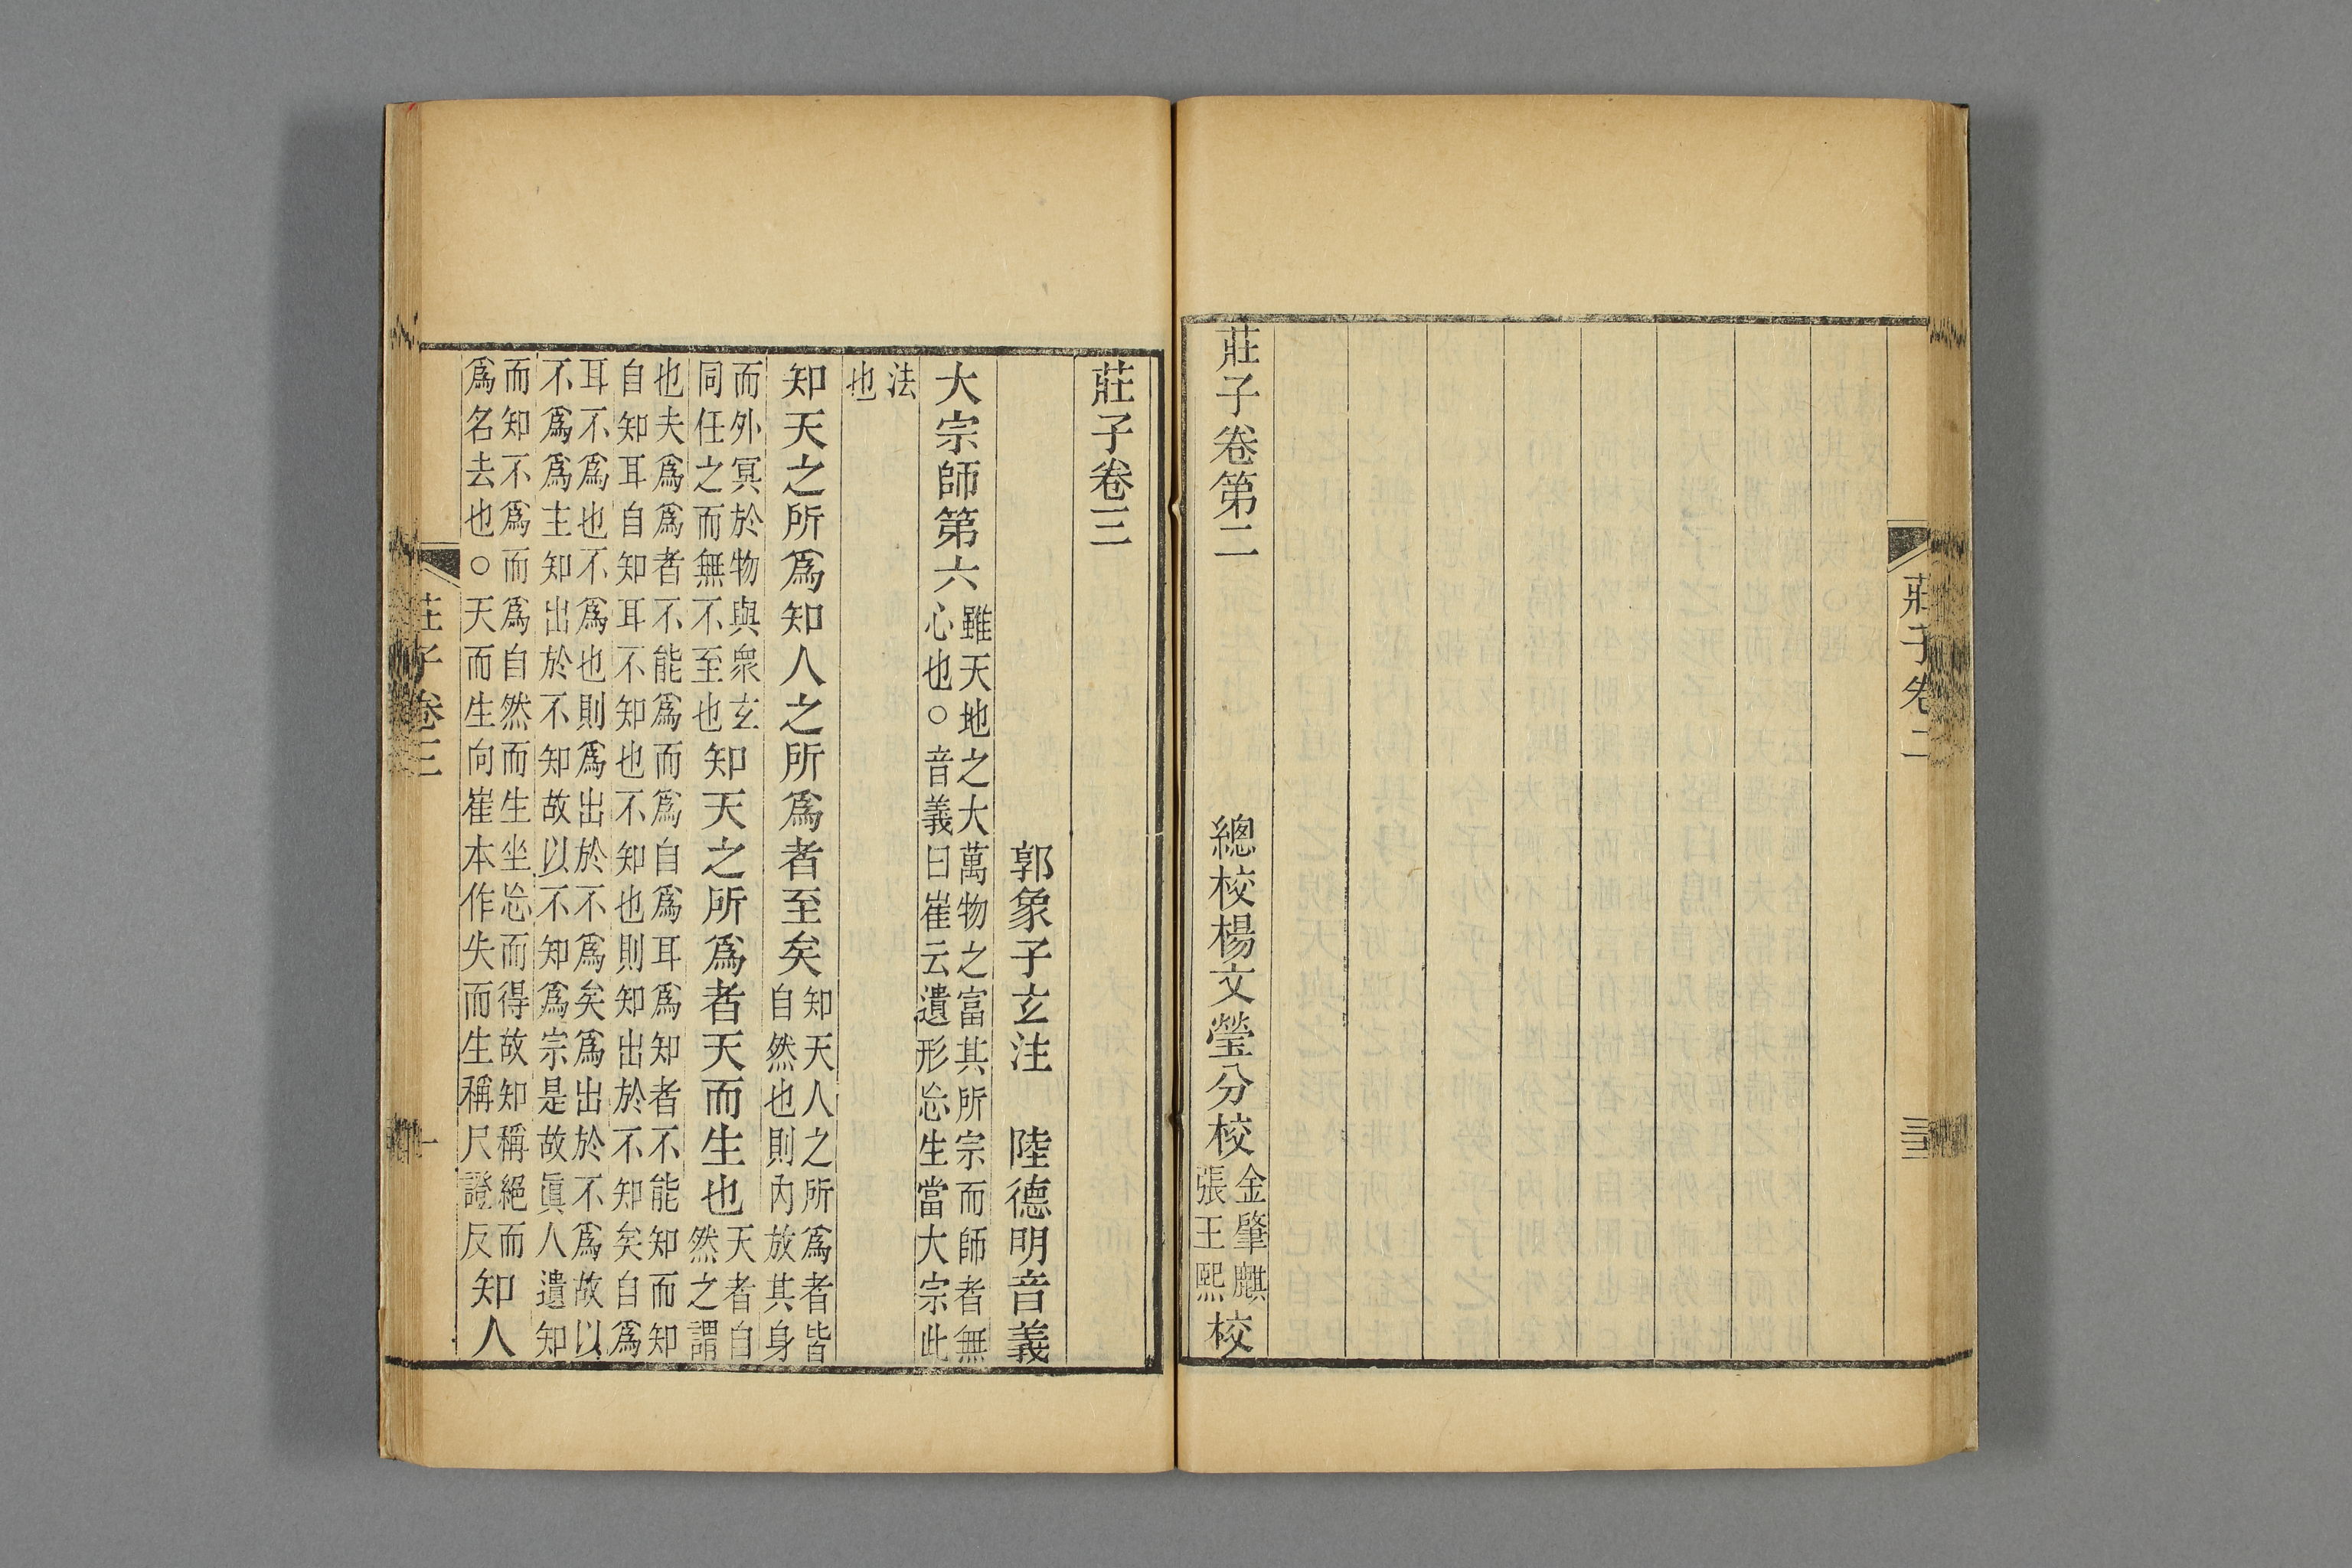 莊子卷二
三三
莊子卷第二
總校楊文瑩分校金肇麒張王熙校
莊子卷三
郭象子玄注 陸德明音義
大宗師第六雖天地之大萬物之富其所宗而師者無
心也○音義曰崔云遺形忘生當大宗此
法
也
知天之所爲知人之所爲者至矣知天人之所爲者皆
自然也則內放其身
而外冥於物與衆玄
同任之而無不至也知天之所爲者天而生也天者自
然之謂
也夫爲爲者不能爲而爲自爲耳爲知者不能知而知
自知耳自知耳不知也不知也則知出於不知矣自爲
耳不爲也不爲也則爲出於不爲矣爲出於不爲故以
不爲爲主知出於不知故以不知爲宗是故眞人遺知
而知不爲而爲自然而生坐忘而得故知稱絕而
爲名去也○天而生向崔本作失而生稱尺證反知人
莊子卷三
一